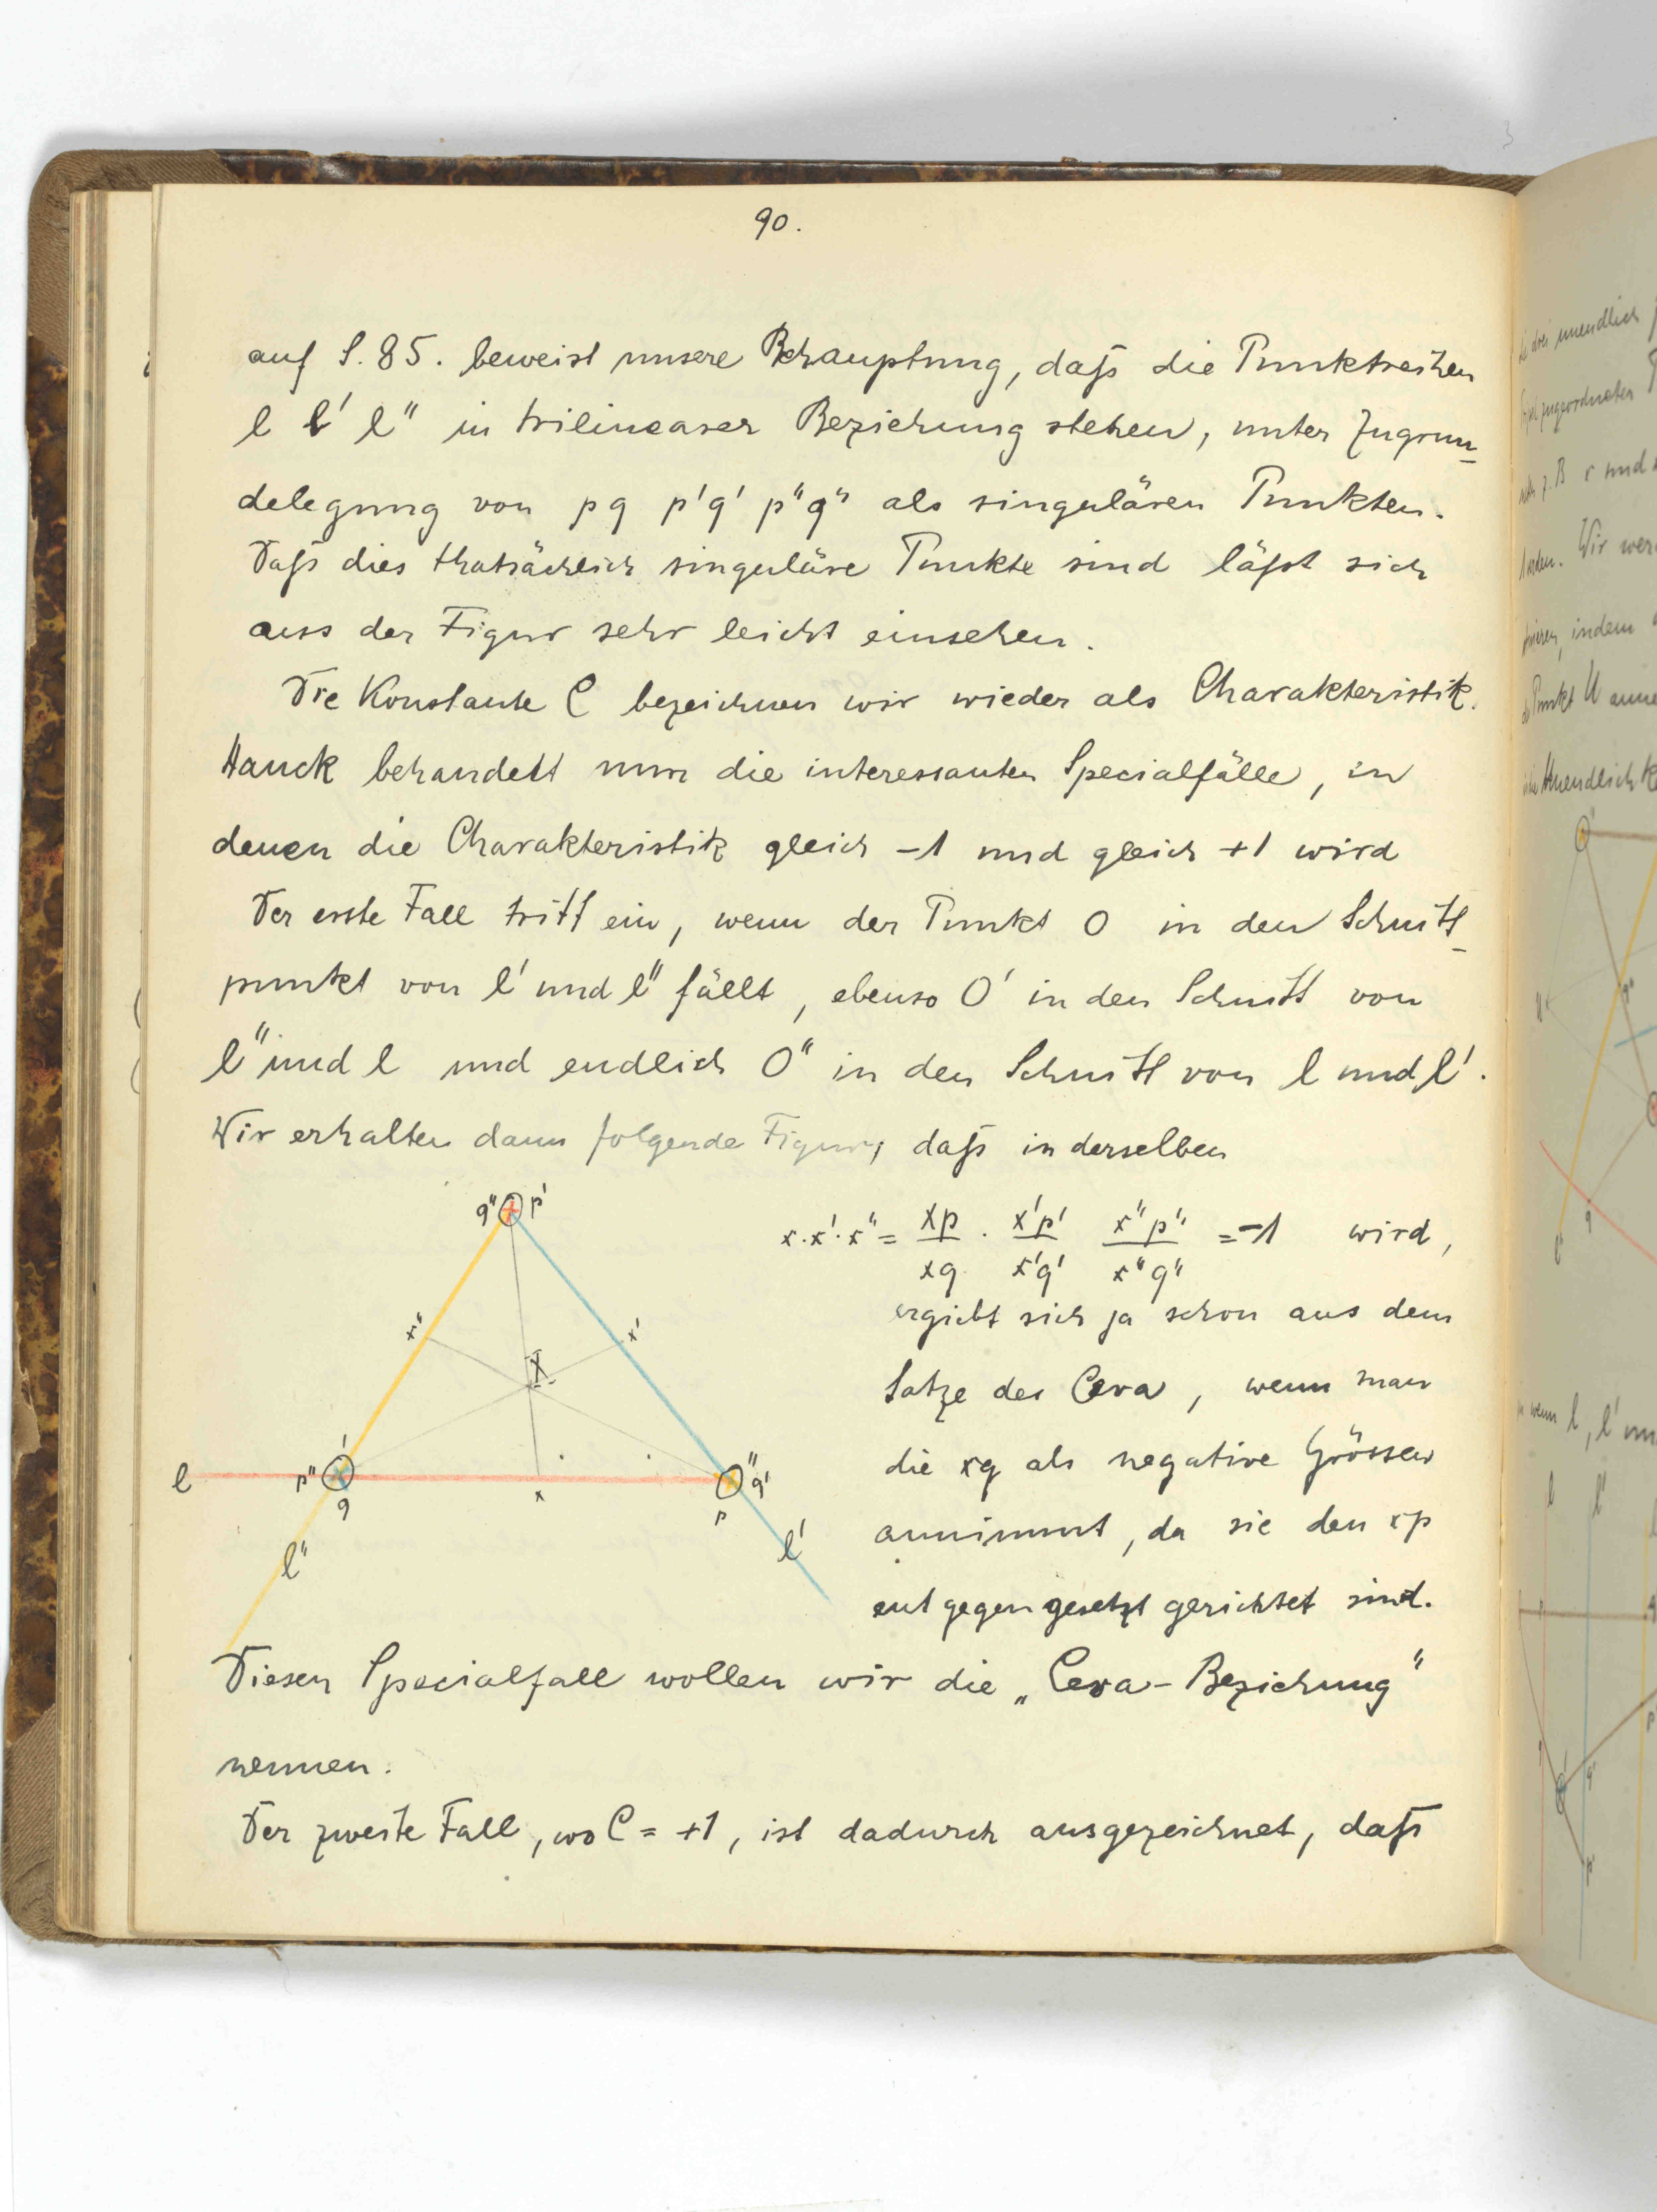 90.
auf S. 85. beweist unsere Behauptung, daſs die Punktreihen
l l' l'' in trilinearer Beziehung stehen, unter Zugrun-
delegung von p q p' q' p'' q'' als singulären Punkten.
Daſs dies thatsächlich singuläre Punkte sind läſst sich
aus der Figur sehr leicht einsehen.
Die Konstante C bezeichnen wir wieder als Charakteristik.
Hauck behandelt nun die interessanten Specialfälle, in
denen die Charakteristik gleich -1 und gleich +1 wird
Der erste Fall tritt ein, wenn der Punkt O in den Schnitt-
punkt von l' und l'' fällt, ebenso O' in den Schnitt von
l'' und l und endlich O'' in den Schnitt von l und l'.
Wir erhalten dann folgende Figur, daſs in derselben
x·x'·x'' = xp/xq · x'p'/x'q' x''p''/x''q'' = -1 wird,
ergiebt sich ja schon aus dem
Satze des Ceva, wenn man
die xq als negative Grössen
annimmt, da sie den xp
entgegengesetzt gerichtet sind.
q'' p'
x'' x'
X
l p'' ' q x p '' q'
l'' l'
Diesen Specialfall wollen wir die „Ceva-Beziehung“
nennen.
Der zweite Fall, wo C = +1, ist dadurch ausgezeichnet, daſs